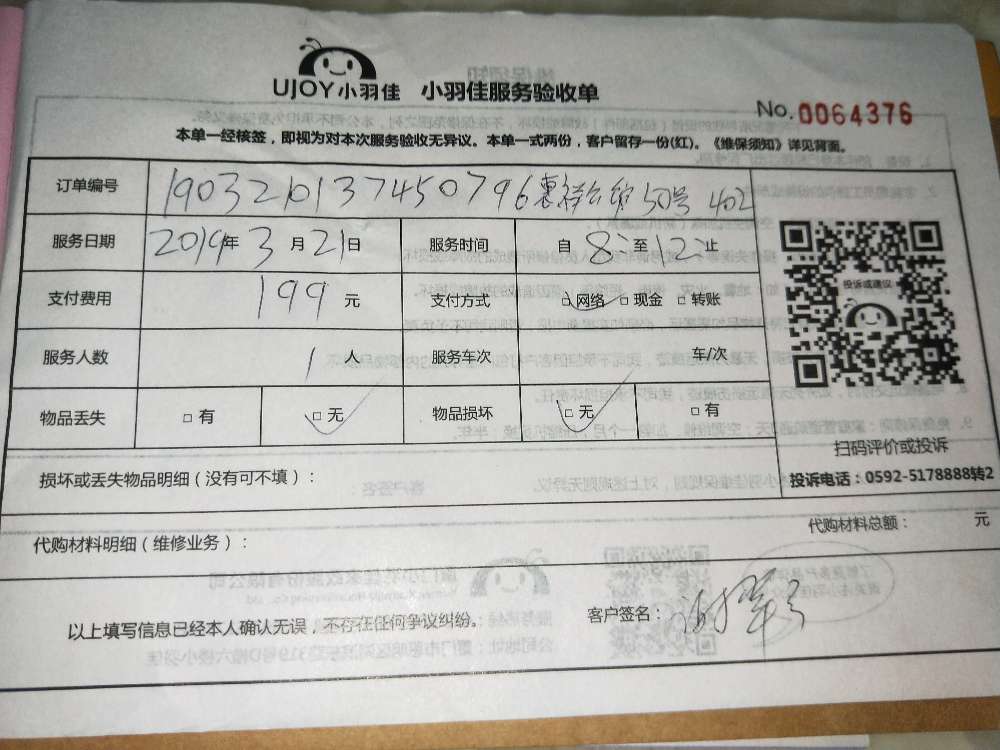 UJOY小羽佳 小羽佳服务验收单
No.0064376
本单一经核签，即视为对本次服务验收无异议。本单一式两份，客户留存一份(红)。《维保须知》详见背面。
订单编号 190321013745079 6惠祥公馆50号 402
服务日期 2019年 3月21日 服务时间 自 8:至12:止
支付费用 199 元 支付方式 □网络 □现金 □转账
投诉或建议
服务人数 1 人 服务车次 车/次
物品丢失 □有 □无 物品损坏 □无 □有
扫码评价或投诉
损坏或丢失物品明细（没有可不填）：
投诉电话：0592-5178888转2
代购材料总额： 元
代购材料明细（维修业务）：
以上填写信息已经本人确认无误，不存在任何争议纠纷。 客户签名：